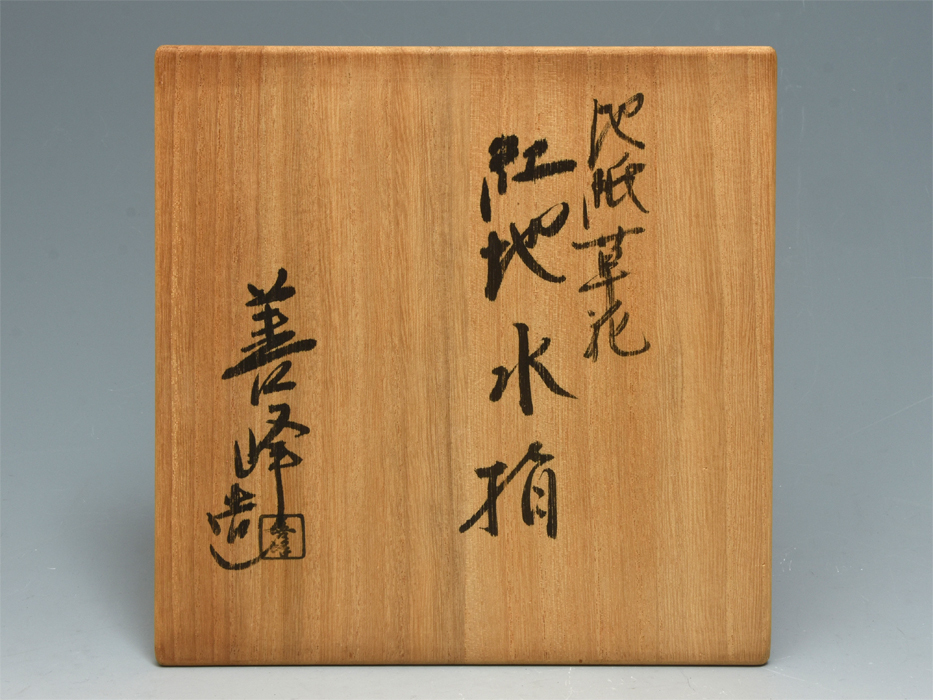 地紙草花
紅地水指
善峰造